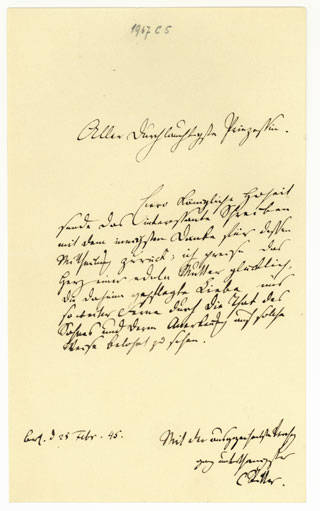 1967 C 5
Aller Durchlauchtigste Prinzessin.
Ihro Königliche Hoheit
sende das interessante Schreiben
mit dem innigsten Danke für dessen
Mittheilung zurück; ich preise das
Herz einer edeln Mutter glücklich,
die daheim gepflegte Liebe
so weiter Ferne durch die That des
Sohnes und deren auf solche
Weise belohnt zu sehen.
Berl. d 25 Febr. 45.
Mit der
ganz unterthänigster
C Ritter.